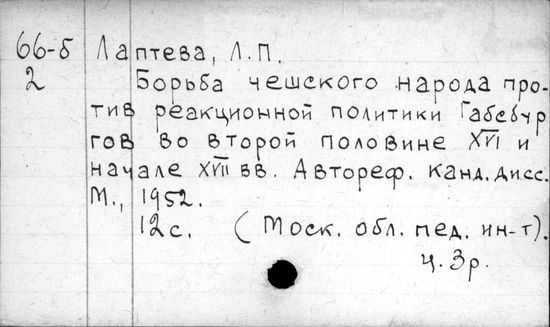 66-б Лаптева, Л.П.
2 Борьба чешского народа про-
тив реакционной политики Габсбур
гов во второй половине XVI и
начале XVII вв. Автореф. канд. дисс.
М., 1952.
12с. (Моск. обл. пед. ин-т).
ц. 3р.